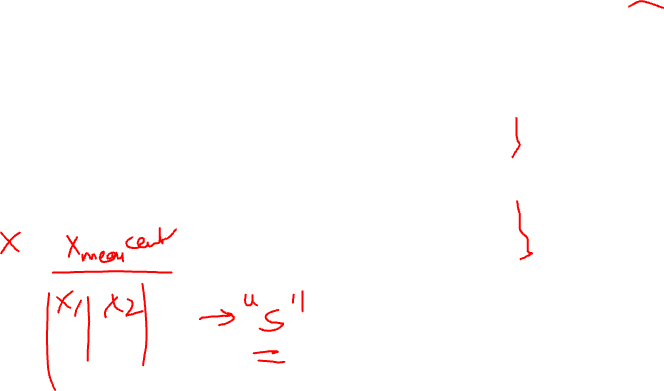 X X mean cent
X1 | X2 → "S"